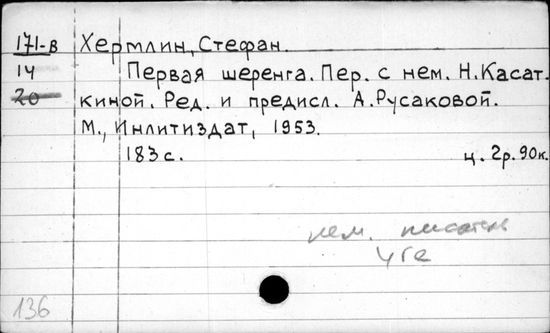 171-В Хермлин, Стефан.
14 Первая шеренга. Пер. с нем. Н.Касат-
20 киной. Ред. и предисл. А.Русаковой.
М., Инлитиздат, 1953.
183 с. ц. 2р. 90к.
нем. писатель
136